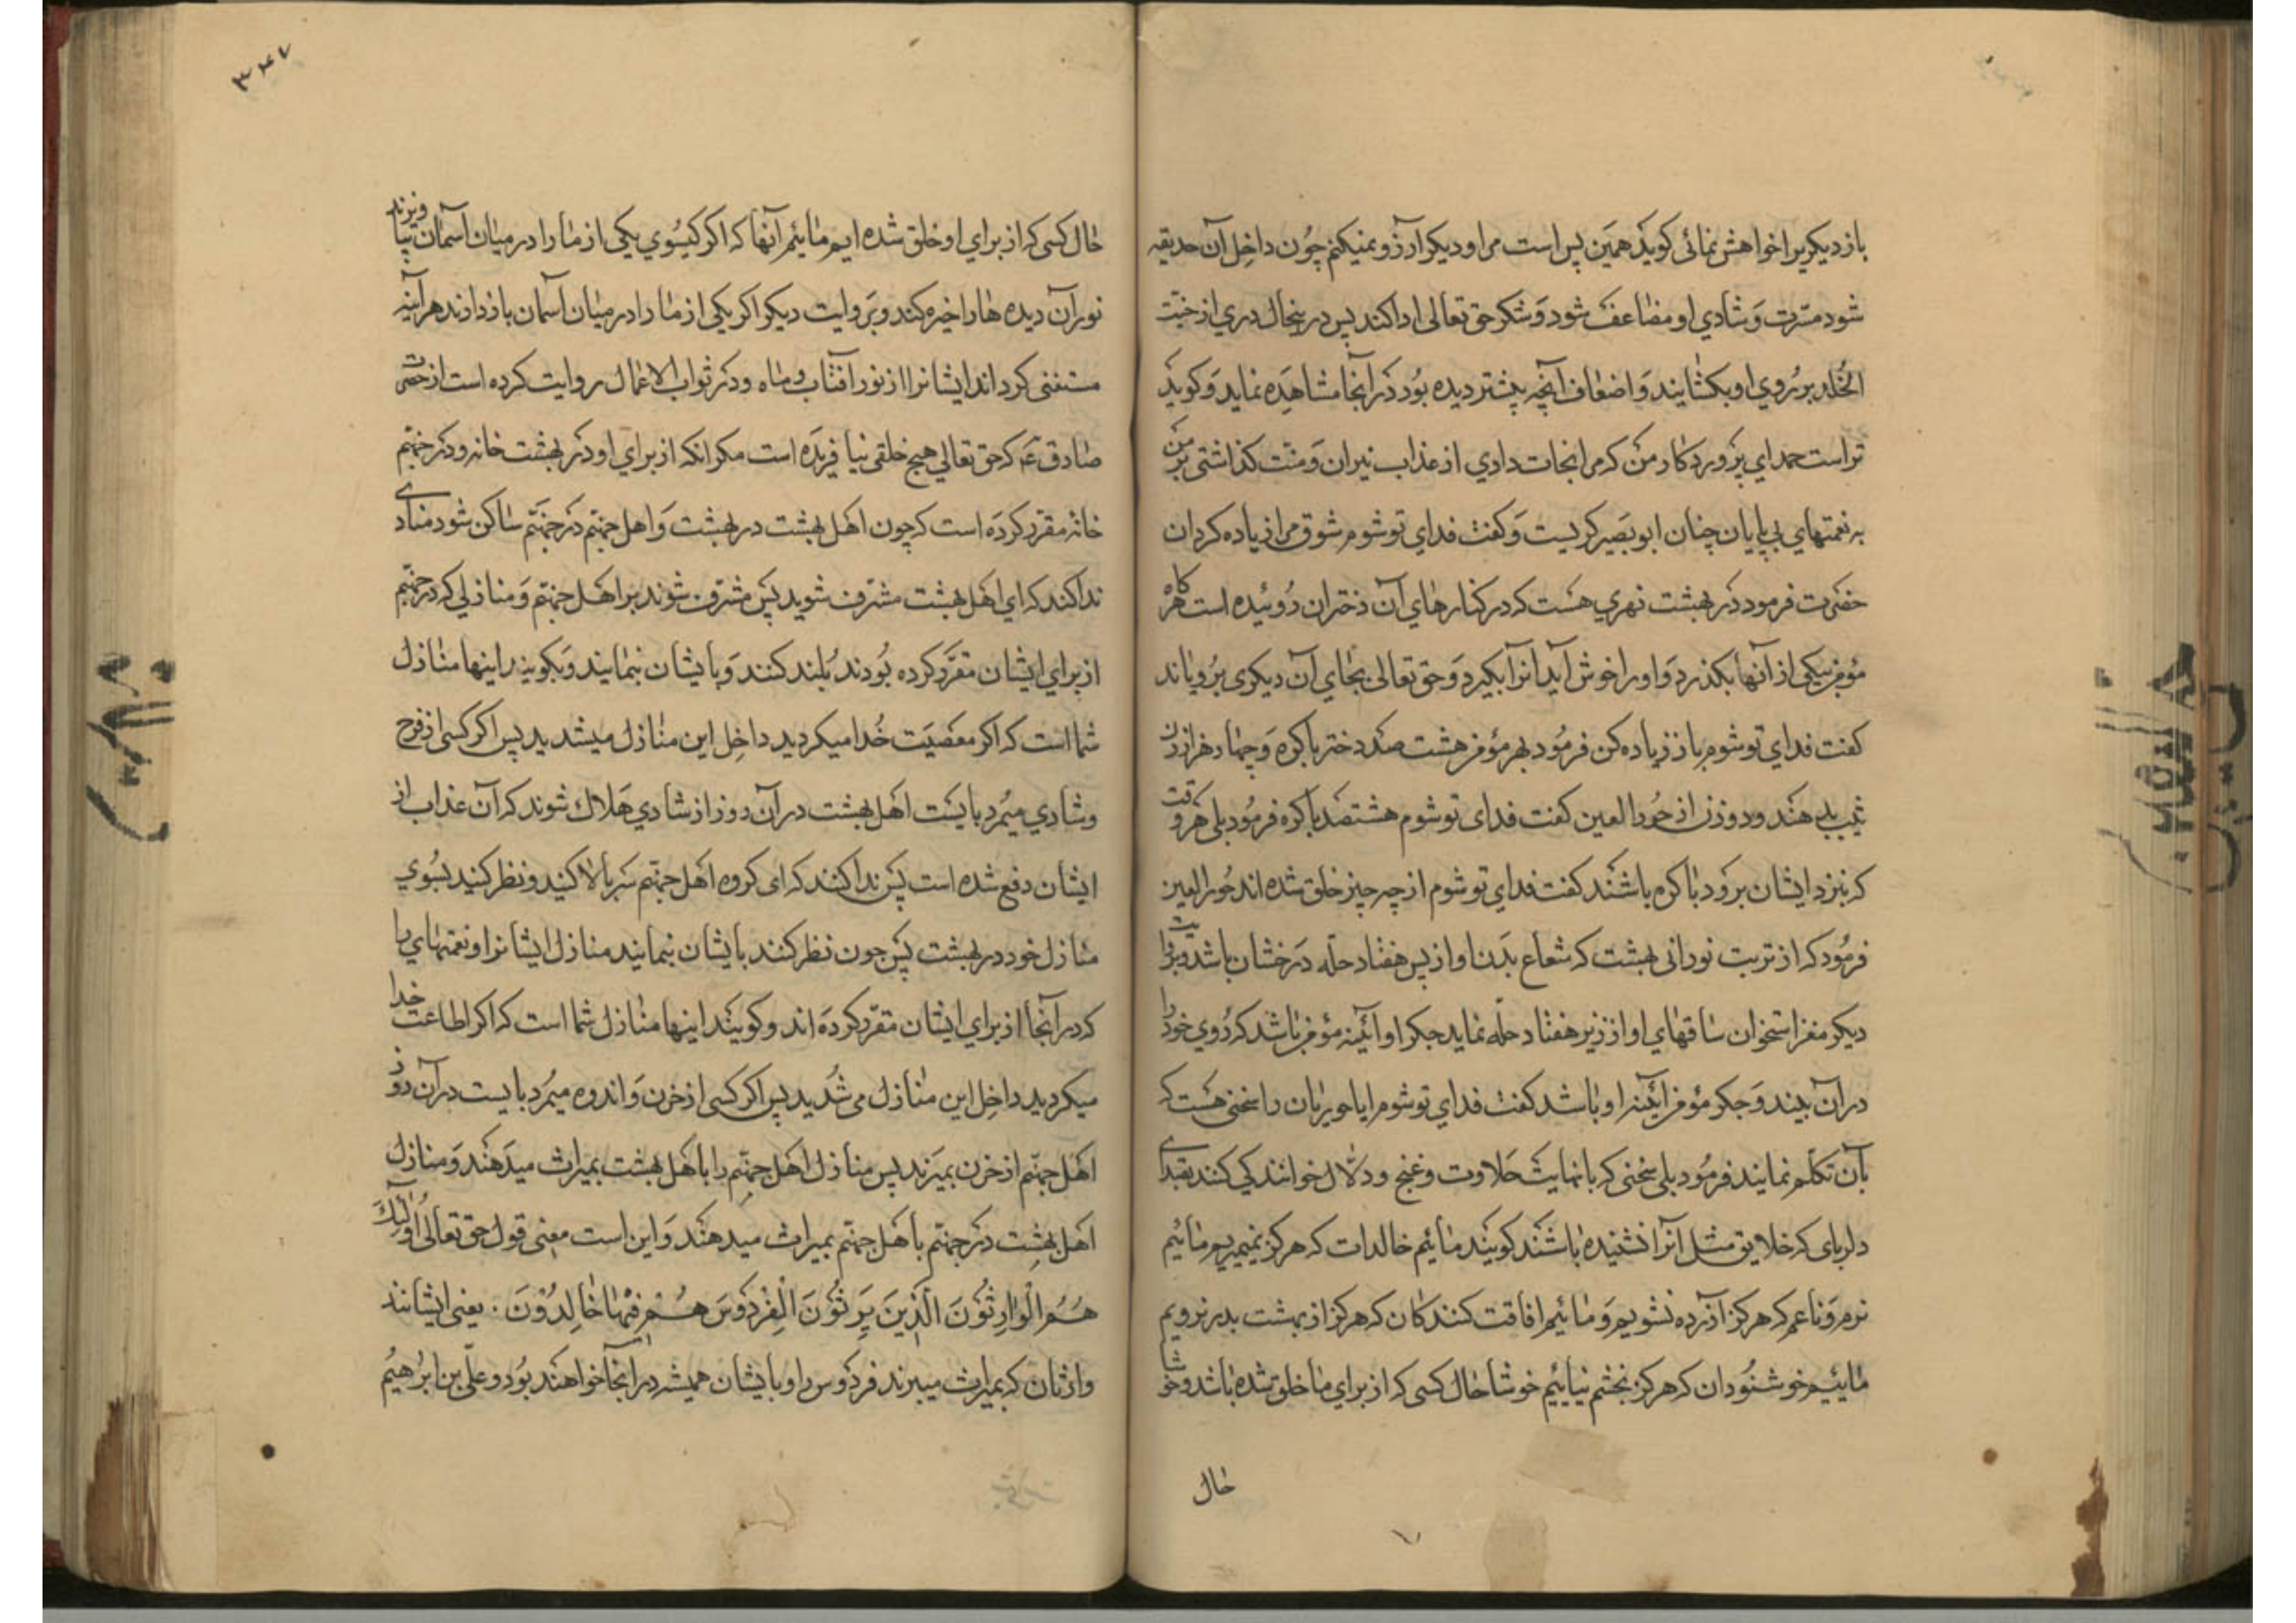 باز دیکر برا خواهش نمائی کوید همین بس است مرا و دیکر آرزو نمیکنم چون داخل آن حدیقه
شود مسرت و شادی او مضاعف شود و شکر حق تعالی ادا کند پس در ینحال دری از جنت
الخلد بر روی او بکشایند و اضعاف آنچه پیشتر دیده بود در آنجا مشاهده نماید و کوید
تراست حمد ای پرورد کار من که مرا نجات دادی از عذاب نیران و منت کذاشتی بر من
به نعمتهای بی پایان چنان ابو بصیر کریست و کفت فدای توشوم شوق مرا زیاده کردان
حضرت فرمود در بهشت نهری هست که در کنارهای آن دختران روئیده است هرکاه
مؤمن بیکی از آنها بکذرد و او را خوش آید آنرا بکیرد و حق تعالی بجای آن دیکری برویاند
کفت فدای توشوم باز زیاده کن فرمود بهر مؤمن هشت صد دختر باکره و چهار هزار زن
ثیب بدهند و دو زن از حور العین کفت فدای توشوم هشتصد باکره فرمود بلی هر وقت
که بنزد ایشان برود باکره باشند کفت فدای توشوم از چه چیز خلق شده اند حور العین
فرمود که از تربت نورانی بهشت که شعاع بدن او از پس هفتاد حله درخشان باشد و بروایت
دیکر مغز استخوان ساقهای او از زیر هفتاد حله نماید جکر او آئینه مؤمن باشد که روی خود را
در آن بیند و جکر مؤمن آئینه او باشد کفت فدای توشوم ایا حوریان را سخنی هست که
بآن تکلم نمایند فرمود بلی سخنی که با نهایت حلاوت و غنج و دلال خوانندکی کنند بصدای
دلربای که خلایق مثل آنرا نشنیده باشند کویند مائیم خالدات که هرکز نمیمیریم مائیم
نرم و ناعم که هرکز آزرده نشویم و مائیم اقاقت کنندکان که هرکز از بهشت بدر نرویم
مائییم خوشنودان که هرکز بخشم نیائیم خوشا حال کسی که از برای ما خلق شده باشد و خوشا
حال
۳۴۷
حال کسی که از برای او خلق شده ایم مائیم آنها که اکر کیسوی یکی از ما را در میان آسمان بیاویزند
نور آن دیده ها را خیره کند و بروایت دیکر اکر یکی از ما را در میان آسمان باز دارند هر آینه
مستغنی کرداند ایشانرا از نور آفتاب و ماه و در ثواب الاعمال روایت کرده است از حضرت
صادق ع که حق تعالی هیچ خلقی نیا فریده است مکر انکه از برای او در بهشت خانه و در جهنم
خانه مقرر کرده است که چون اهل بهشت در بهشت و اهل جهنم در جهنم ساکن شود منادی
ندا کند که ای اهل بهشت مشرف شوید پس مشرف شوند بر اهل جهنم و منازلی که در جهنم
از برای ایشان مقرر کرده بودند بلند کنند و بایشان بنمایند و بکویند اینها منازل
شما است که اکر معصیت خدا میکردید داخل این منازل میشدید پس اکر کسی از فرح
و شادی میمرد بایست اهل بهشت در آن روز از شادی هلاک شوند که آن عذاب از
ایشان دفع شده است پس ندا کنند که ای کروه اهل جهنم سر بالا کنید و نظر کنید بسوی
منازل خود در بهشت پس چون نظر کنند بایشان بنمایند منازل ایشانرا و نعمتهای را
که در آنجا از برای ایشان مقرر کرده اند و کویند اینها منازل شما است که اکر اطاعت خدا
میکردید داخل این منازل می شدید پس اکر کسی از حزن و اندوه میمرد بایست در آن روز
اهل جهنم از حزن بمیرند پس منازل اهل جهنم را باهل بهشت بمیراث میدهند و منازل
اهل بهشت در جهنم باهل جهنم بمیراث میدهند و این است معنی قول حق تعالی اولئک
هُمُ الْوارِثُونَ الَّذینَ یَرِثُونَ الْفِرْدَوْسَ هُمْ فیها خالِدُونَ . یعنی ایشانند
وارثان که بمیراث میبرند فردوس را و بایشان همیشه در آنجا خواهند بود و علی بن ابرهیم